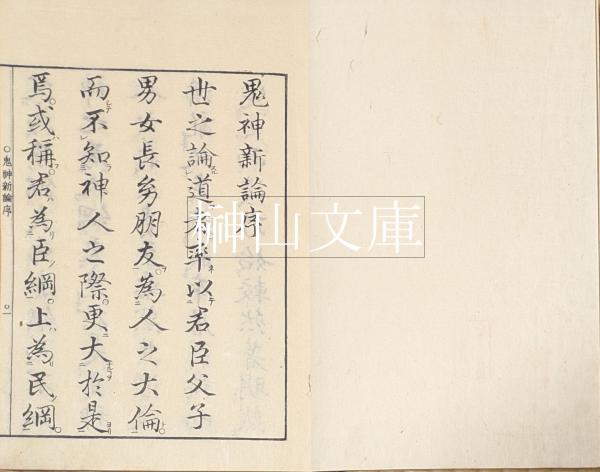 鬼神新論序
世之論道者率以君臣父子
男女長幼朋友為人之大倫
而不知神人之際更大於是
焉或稱君為臣綱上為民綱
鬼神新論序
榊山文庫